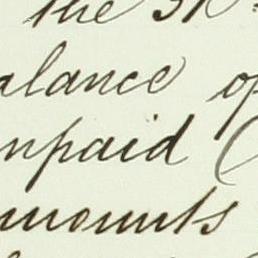 the 31
alance of
npaid (
mounts